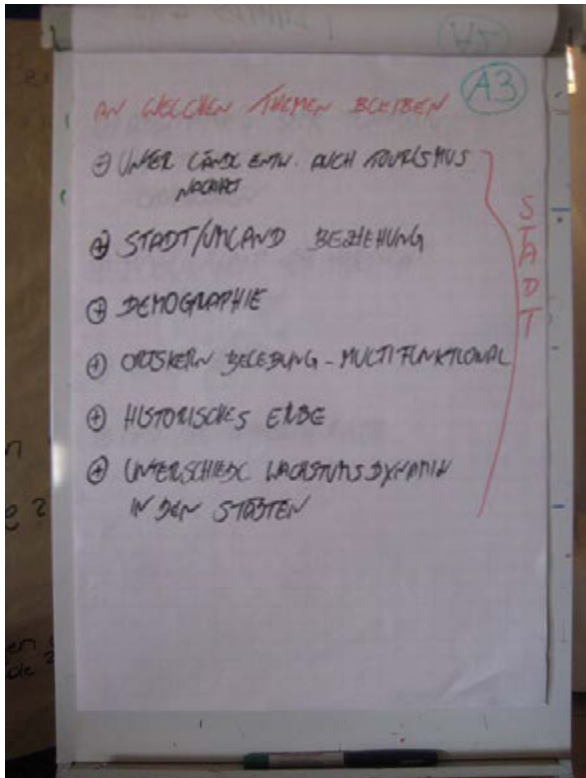 A3
AN WELCHEN THEMEN BLEIBEN
⊕ UNTER LÄNDL ENTW. AUCH TOURISMUS
⊕ STADT/UMLAND BEZIEHUNG
⊕ DEMOGRAPHIE
⊕ ORTSKERN BELEBUNG - MULTIFUNKTIONAL
⊕ HISTORISCHES ERBE
⊕ UNTERSCHIEDL WACHSTUMSDYNAMIK
IN DEN STÄDTEN
STADT